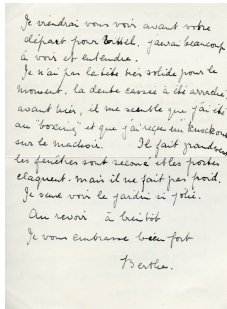 Je viendrai vous voir avant votre
départ pour Vittel, j'aurai beaucoup
à voir et entendre.
Je n'ai pas la tête très solide pour le
moment, la dente cassée à été arrachée
avant hier, il me semble que j'ai été
au "boxing" et que j'ai reçu un knockout
sur le machoir. Il fait grand vent
les fenêtres sont secoué et les portes
claquent. mais il ne fait pas froid.
Je veux voir le jardin si jolie.
Au revoir à bientôt
Je vous embrasse bien fort
Berthe.